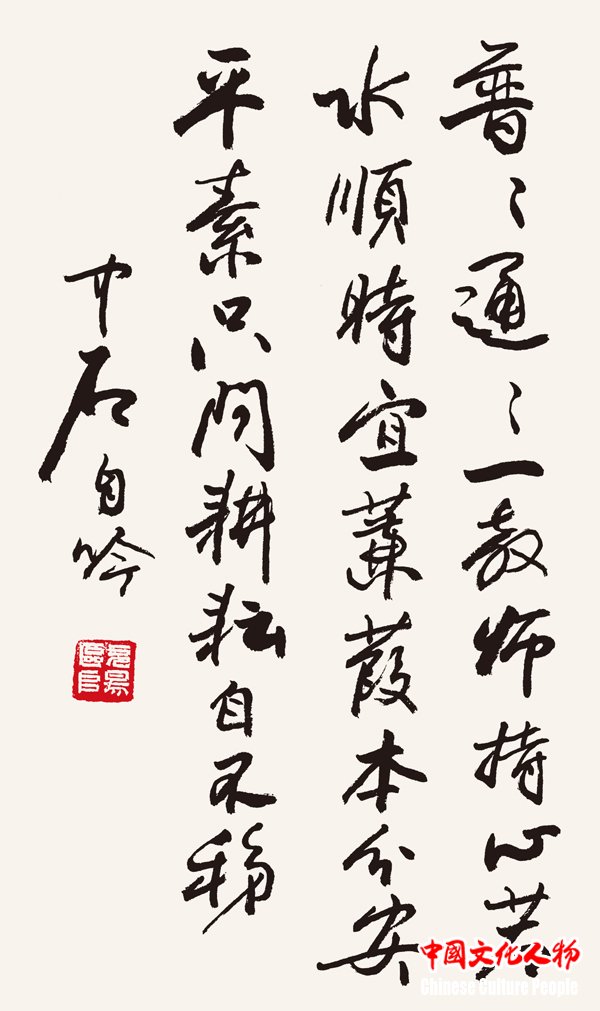 普〻通〻一教师持心共
水順時宜蒹葭本分安
平素只问耕耘自不移
中石自吟
中國文化人物
Chinese Culture People